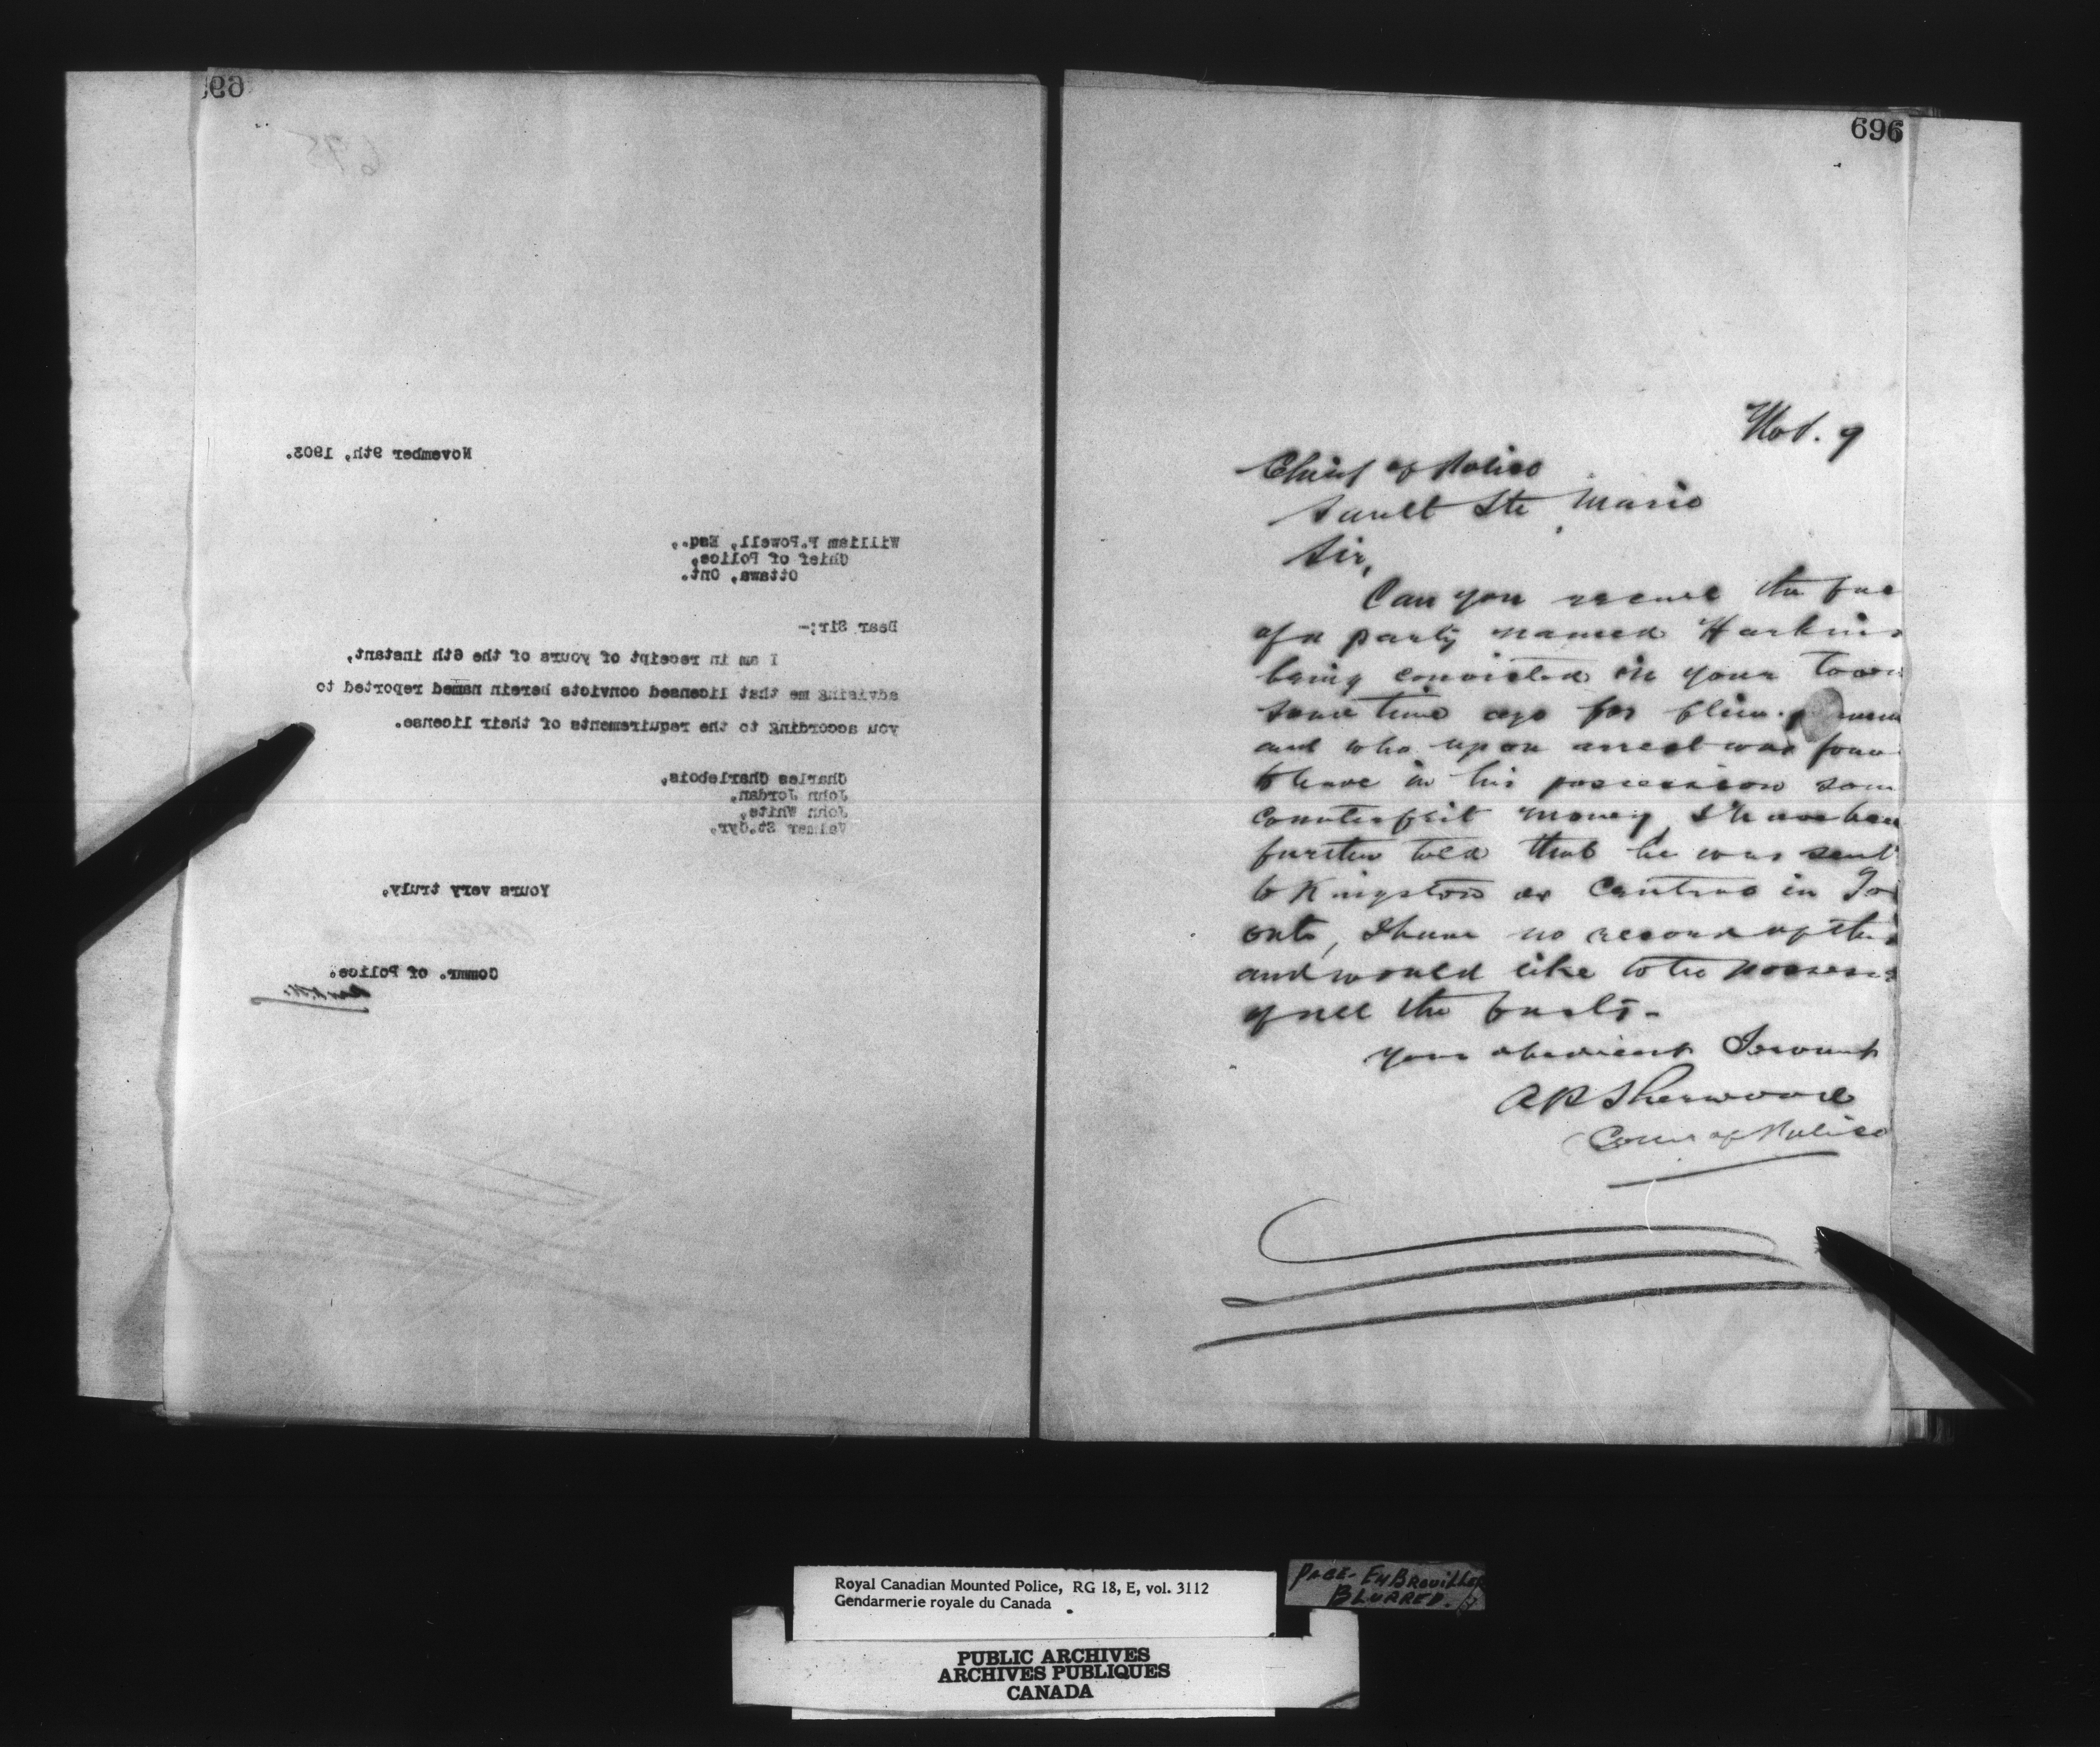 695
November 9th, 1903.
William F. Powell, Esq.,
Chief of Police,
Ottawa, Ont.
Dear Sir;-
I am in receipt of yours of the 6th instant,
advising me that licensed convicts herein named reported to
you according to the requirements of their license.
Charles Charlebois,
John Jordan,
John White,
Valmer St.Cyr,
Yours very truly,
Commr. of Police.
696
Nov. 9
Chief of Police
Sault Ste Marie
Sir,
Can you the
of a party named Harkins
being convicted in your town
some time ago for
and who upon arrest was
to have in his possession
counterfeit money, I have been
further told that he was sent
to Kingston or Central in
onto, I have no record of this
and would like to be
of all the facts.
Your obedient Servant
A P Sherwood
Comr of Police
Royal Canadian Mounted Police, RG 18, E, vol. 3112
Gendarmerie royale du Canada
PAGE - EMBROUILLER
BLURRED.
PUBLIC ARCHIVES
ARCHIVES PUBLIQUES
CANADA